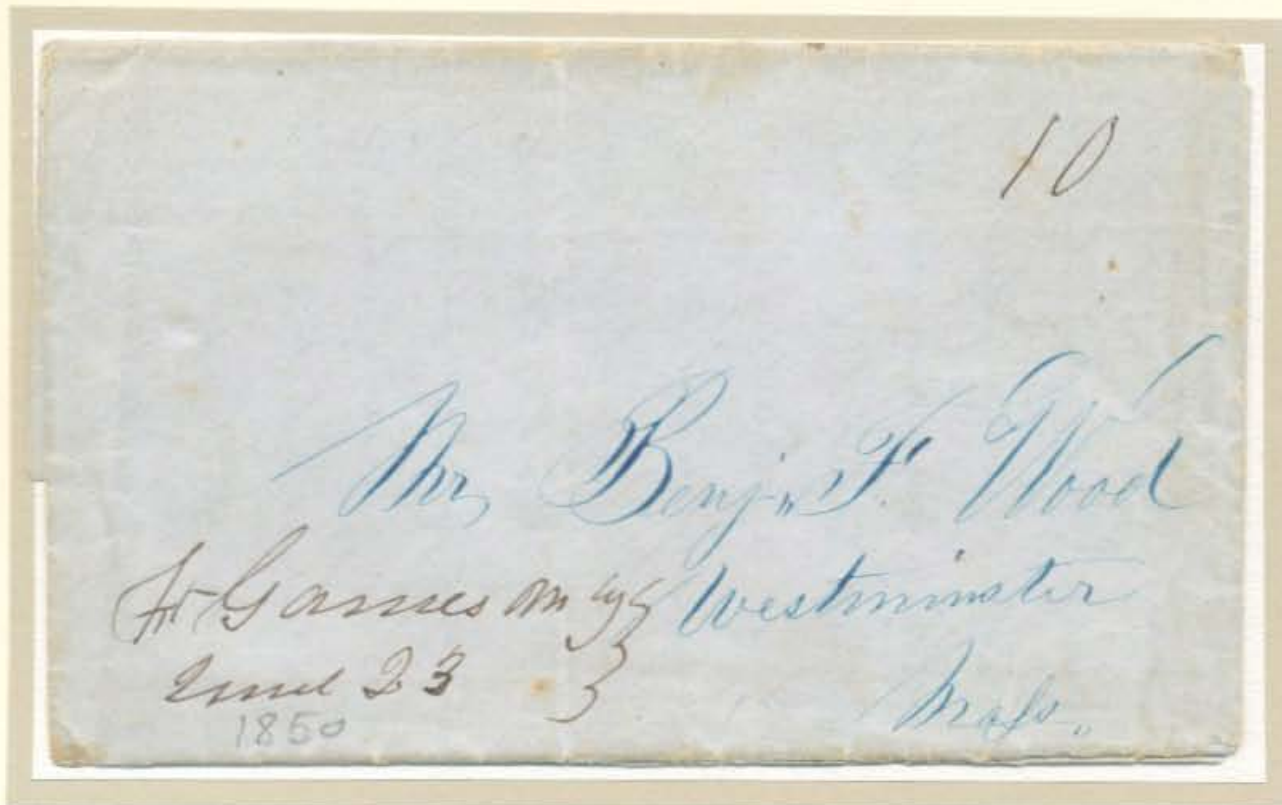 10
Mr, Benj,, F. Wood
Westminster
Mass,,
Ft Gaines M Ty
June 23
1850